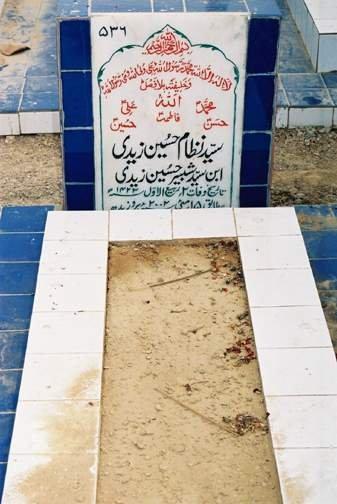 ۵۳۶
بسم اللہ الرحمن الرحیم
لا الہ الا اللہ محمد رسول اللہ علی ولی اللہ وصی رسول اللہ
وخلیفتہ بلا فصل
محمدؐ اللہ علیؑ
حسنؑ فاطمہؑ حسینؑ
سید نظام حسین زیدی
ابن سید شبیر حسین زیدی
تاریخ وفات ۲ ربیع الاول ۱۴۲۳ھ
مطابق ۱۵ مئی ۲۰۰۲ء بروز بدھ